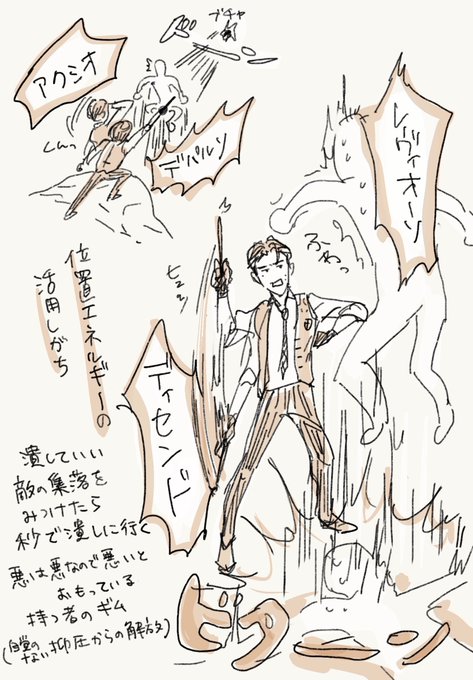 ブチャ
アクシオ
ぐんっ
デパルソ
レヴィオーソ
ふわっ
ヒュッ
位置エネルギーの
活用しがち
ディセンド
潰していい
敵の集落を
みつけたら
秒で潰しに行く
悪は悪なので悪いと
おもっている
持つ者のギム
(自覚のない抑圧からの解放)